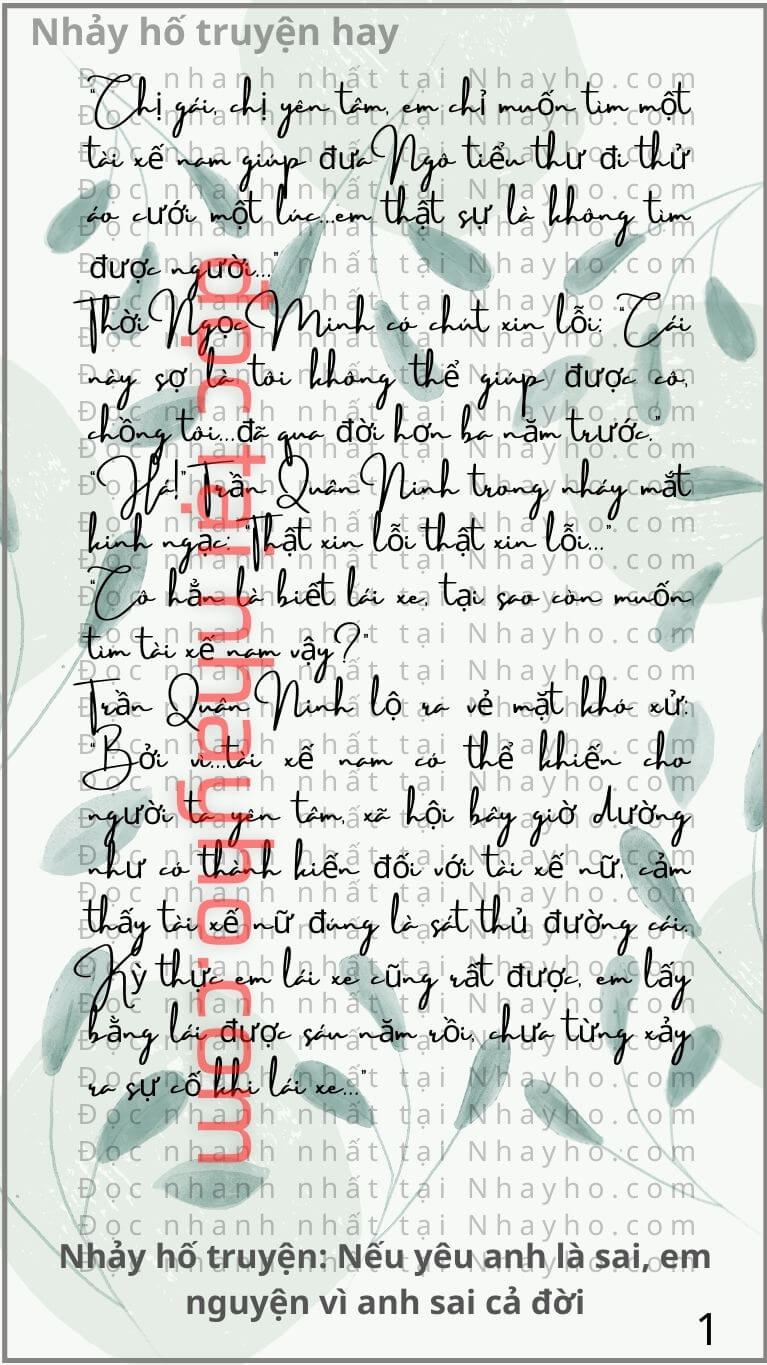 Nhảy hố truyện hay
"Chị gái, chị yên tâm, em chỉ muốn tìm một
tài xế nam giúp đưa Ngô tiểu thư đi thử
áo cưới một lúc...em thật sự là không tìm
được người..."
Thời Ngọc Minh có chút xin lỗi: "Cái
này sợ là tôi không thể giúp được cô,
chồng tôi...đã qua đời hơn ba năm trước."
"Há!" Trần Quân Ninh trong nháy mắt
kinh ngạc: "Thật xin lỗi thật xin lỗi..."
"Cô hẳn là biết lái xe, tại sao còn muốn
tìm tài xế nam vậy?"
Trần Quân Ninh lộ ra vẻ mặt khó xử:
"Bởi vì...tài xế nam có thể khiến cho
người ta yên tâm, xã hội bây giờ dường
như có thành kiến đối với tài xế nữ, cảm
thấy tài xế nữ đúng là sát thủ đường cái.
Kỳ thực em lái xe cũng rất được, em lấy
bằng lái được sáu năm rồi, chưa từng xảy
ra sự cố khi lái xe..."
đọc tại nhayho.com
Đọc nhanh nhất tại Nhayho.com
Nhảy hố truyện: Nếu yêu anh là sai, em
nguyện vì anh sai cả đời
1